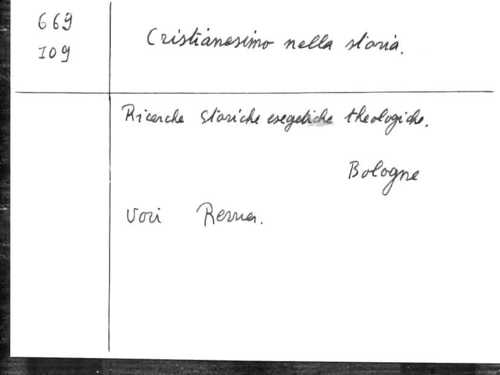 669
109
Cristianesimo nella storia.
Ricerche storiche esegetiche theologiche.
Bologne
Voir Revues.